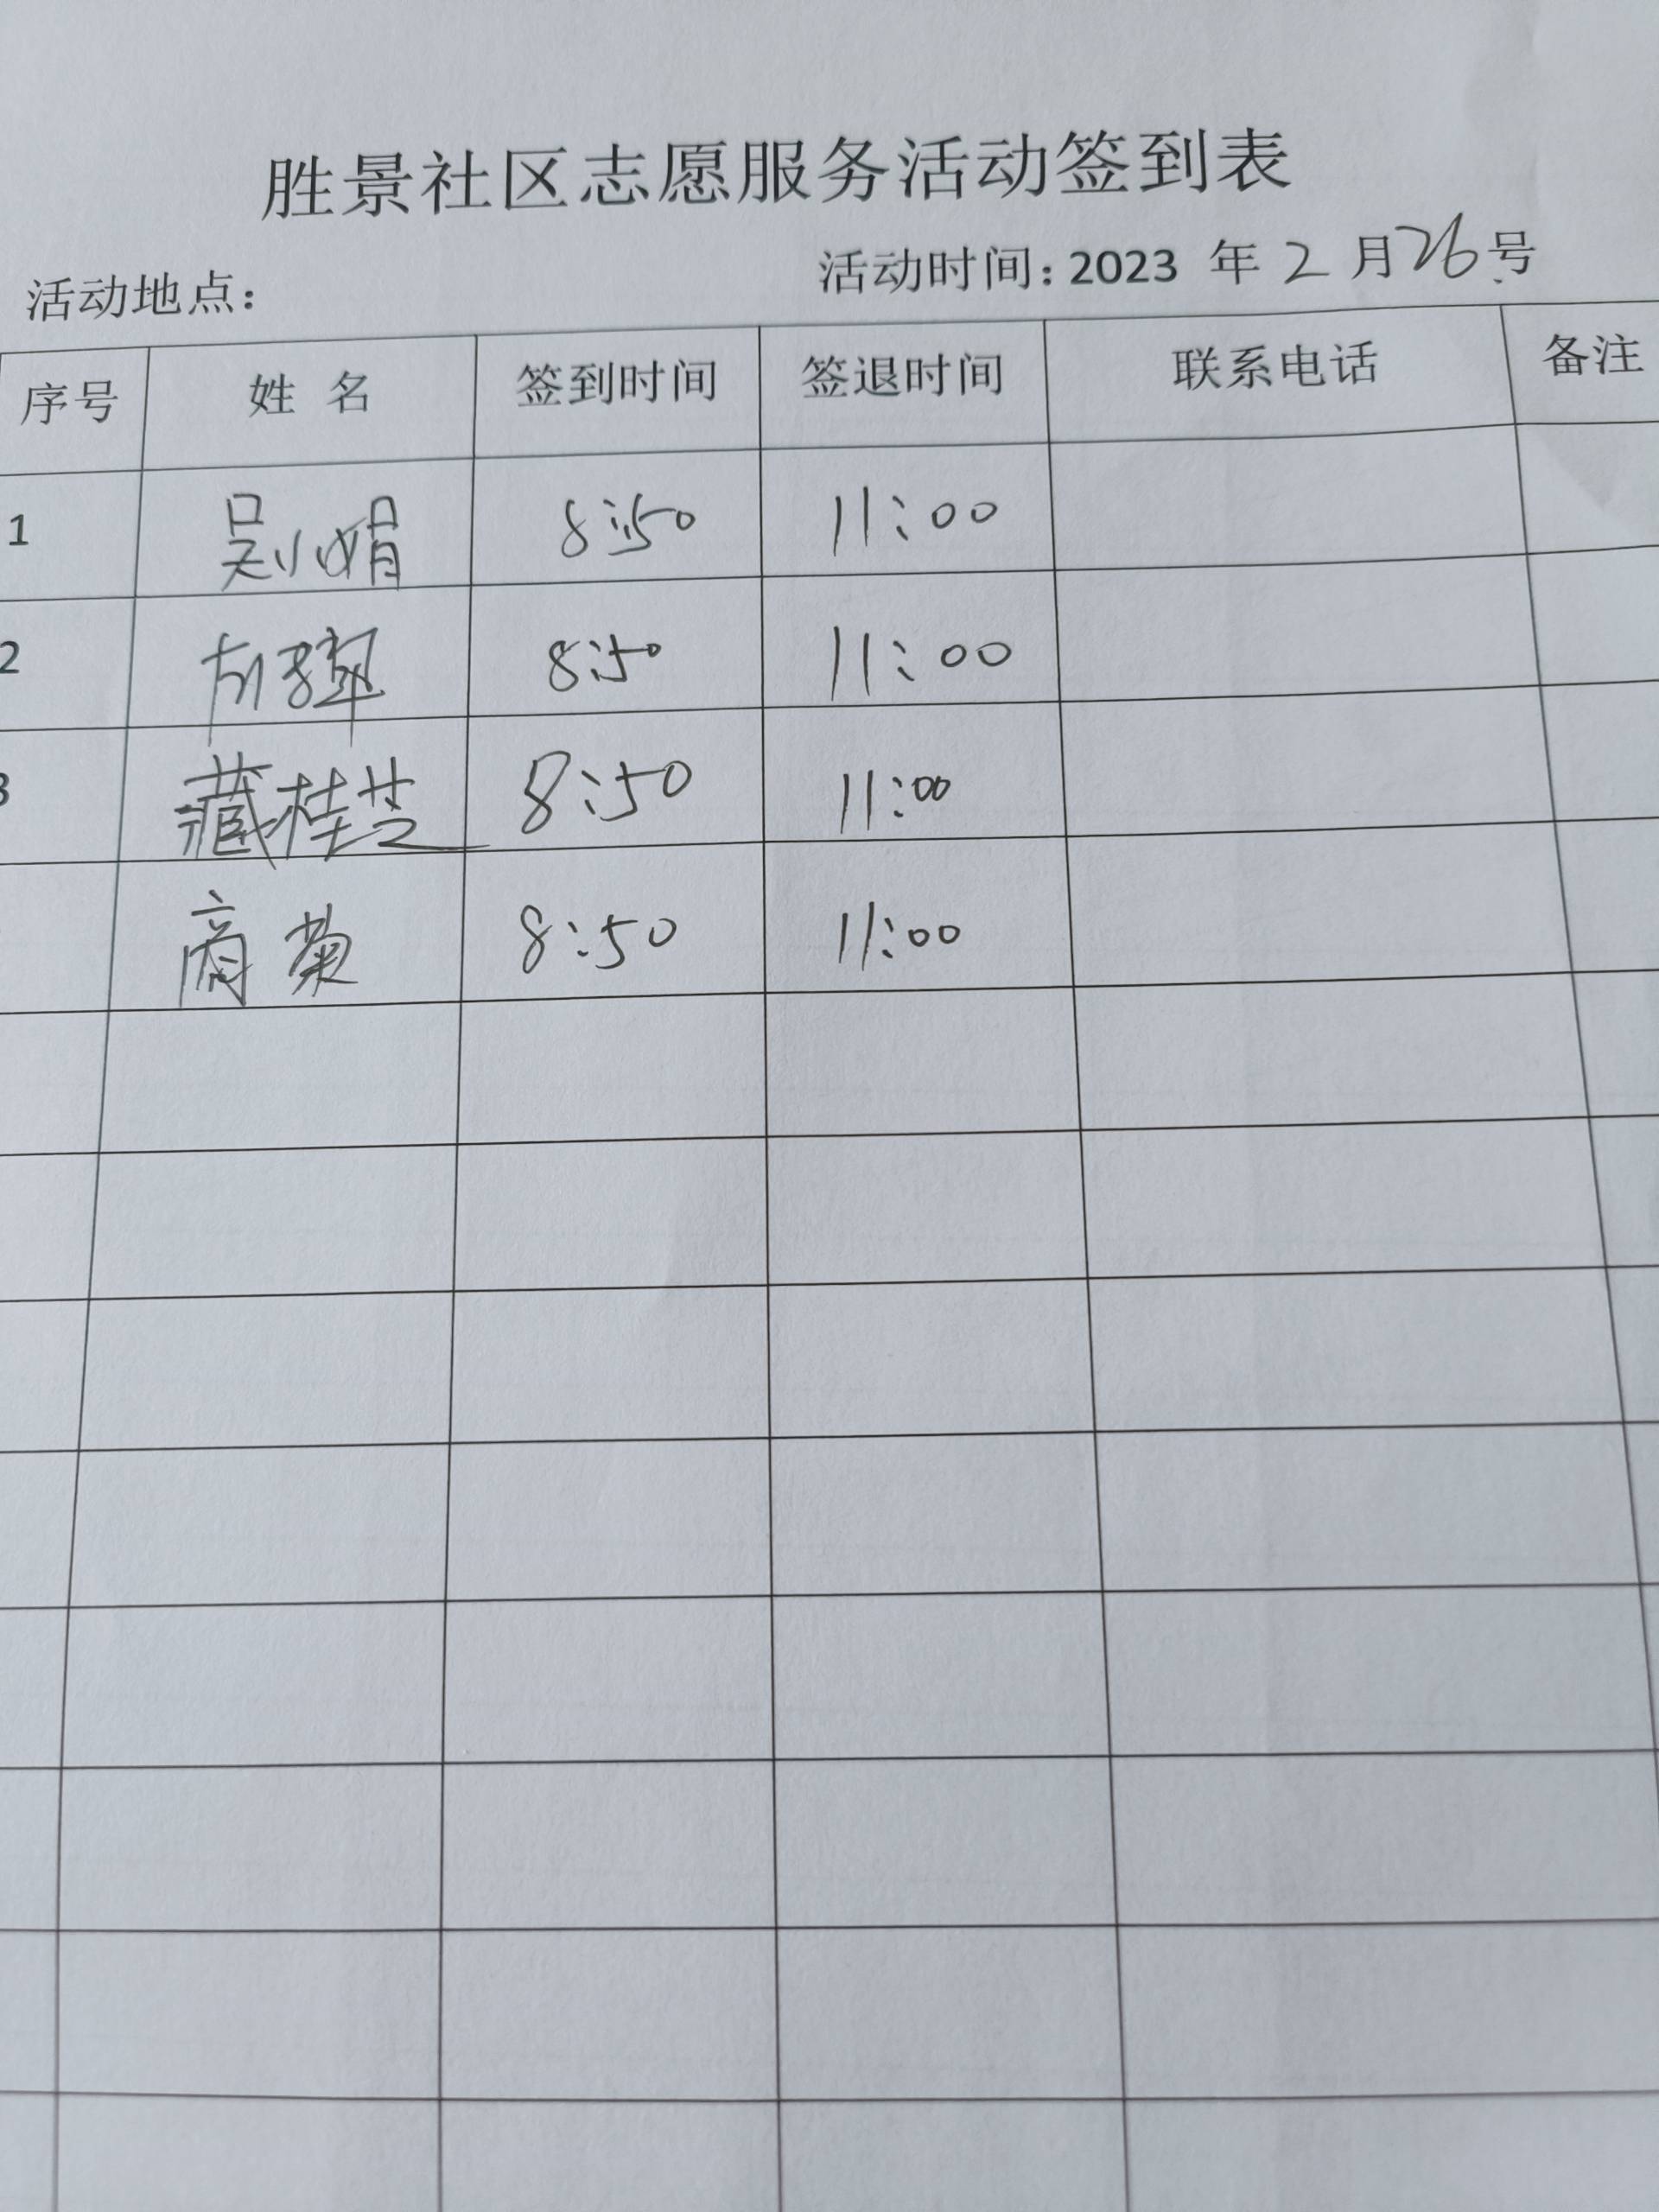 胜景社区志愿服务活动签到表
活动地点: 活动时间: 2023 年 2 月 26 号
序号 姓 名 签到时间 签退时间 联系电话 备注
1 吴小娟 8:50 11:00
2 8:50 11:00
3 藏桂芝 8:50 11:00
商菊 8:50 11:00